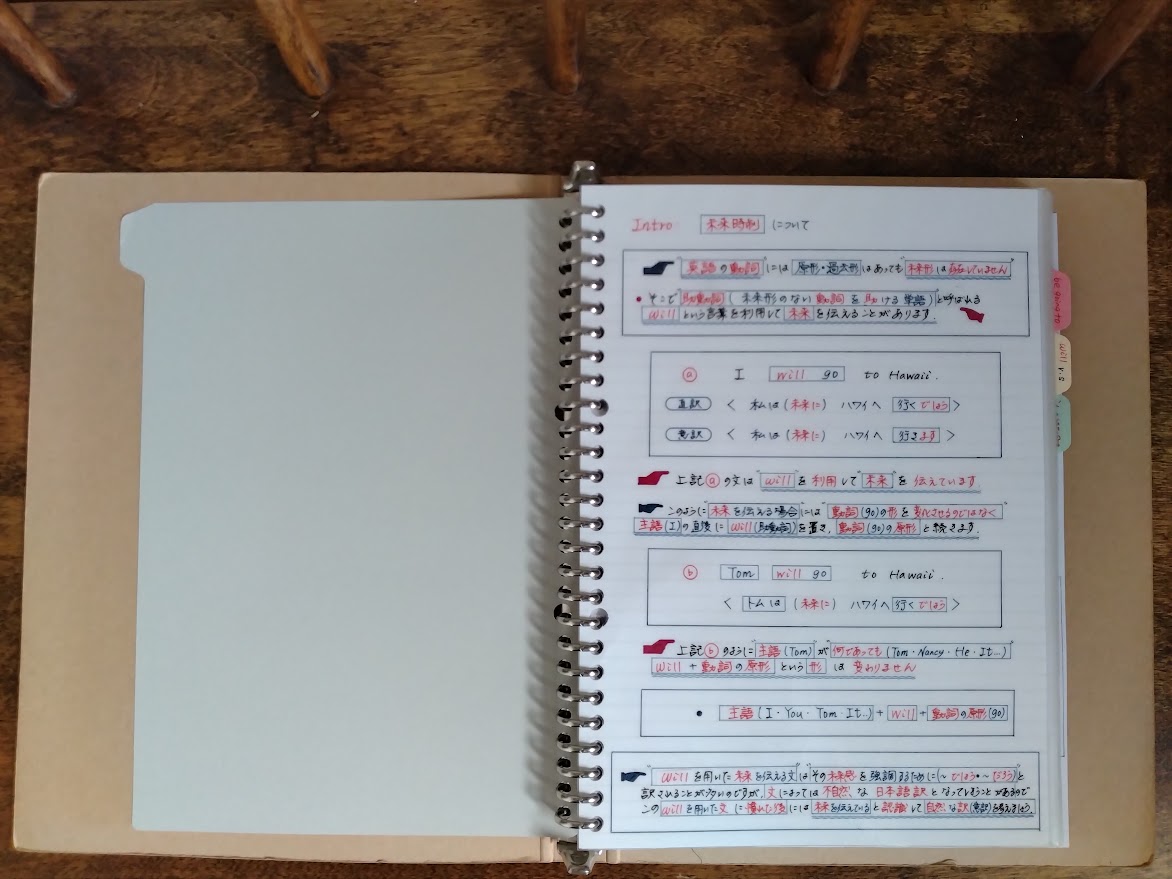 Intro 未来時制 について
"英語の動詞"には 原形・過去形 はあっても "未来形は存在していません"
• そこで "助動詞 (未来形のない動詞を助ける単語)" と呼ばれる
"will" という言葉を利用して "未来" を伝えることがあります.
ⓐ I will go to Hawaii.
直訳 < 私は (未来に) ハワイへ 行くでしょう >
意訳 < 私は (未来に) ハワイへ 行きます >
上記 ⓐ の文は "will" を利用して "未来" を伝えています
このように "未来を伝える場合" には "動詞(go)の形を変化させるのではなく
主語(I)の直後に will(助動詞)を置き, 動詞(go)の原形 と続きます.
ⓑ Tom will go to Hawaii.
< トムは (未来に) ハワイへ 行くでしょう >
上記 ⓑ のように "主語(Tom)" が "何であっても (Tom・Nancy・He・It...)"
"will + 動詞の原形" という "形" は 変わりません
• 主語 (I・You・Tom・It..) + will + 動詞の原形(go)
"will を用いた未来を伝える文"は"その未来感を強調するために(~でしょう・~だろう)"と
訳されることが多いのですが, 文によっては 不自然な 日本語訳 となってしまうことがあるので
この "will を用いた文" に "慣れた後" には "未来を伝えている" と 認識して "自然な訳(意訳)を考えましょう.
be going to
will